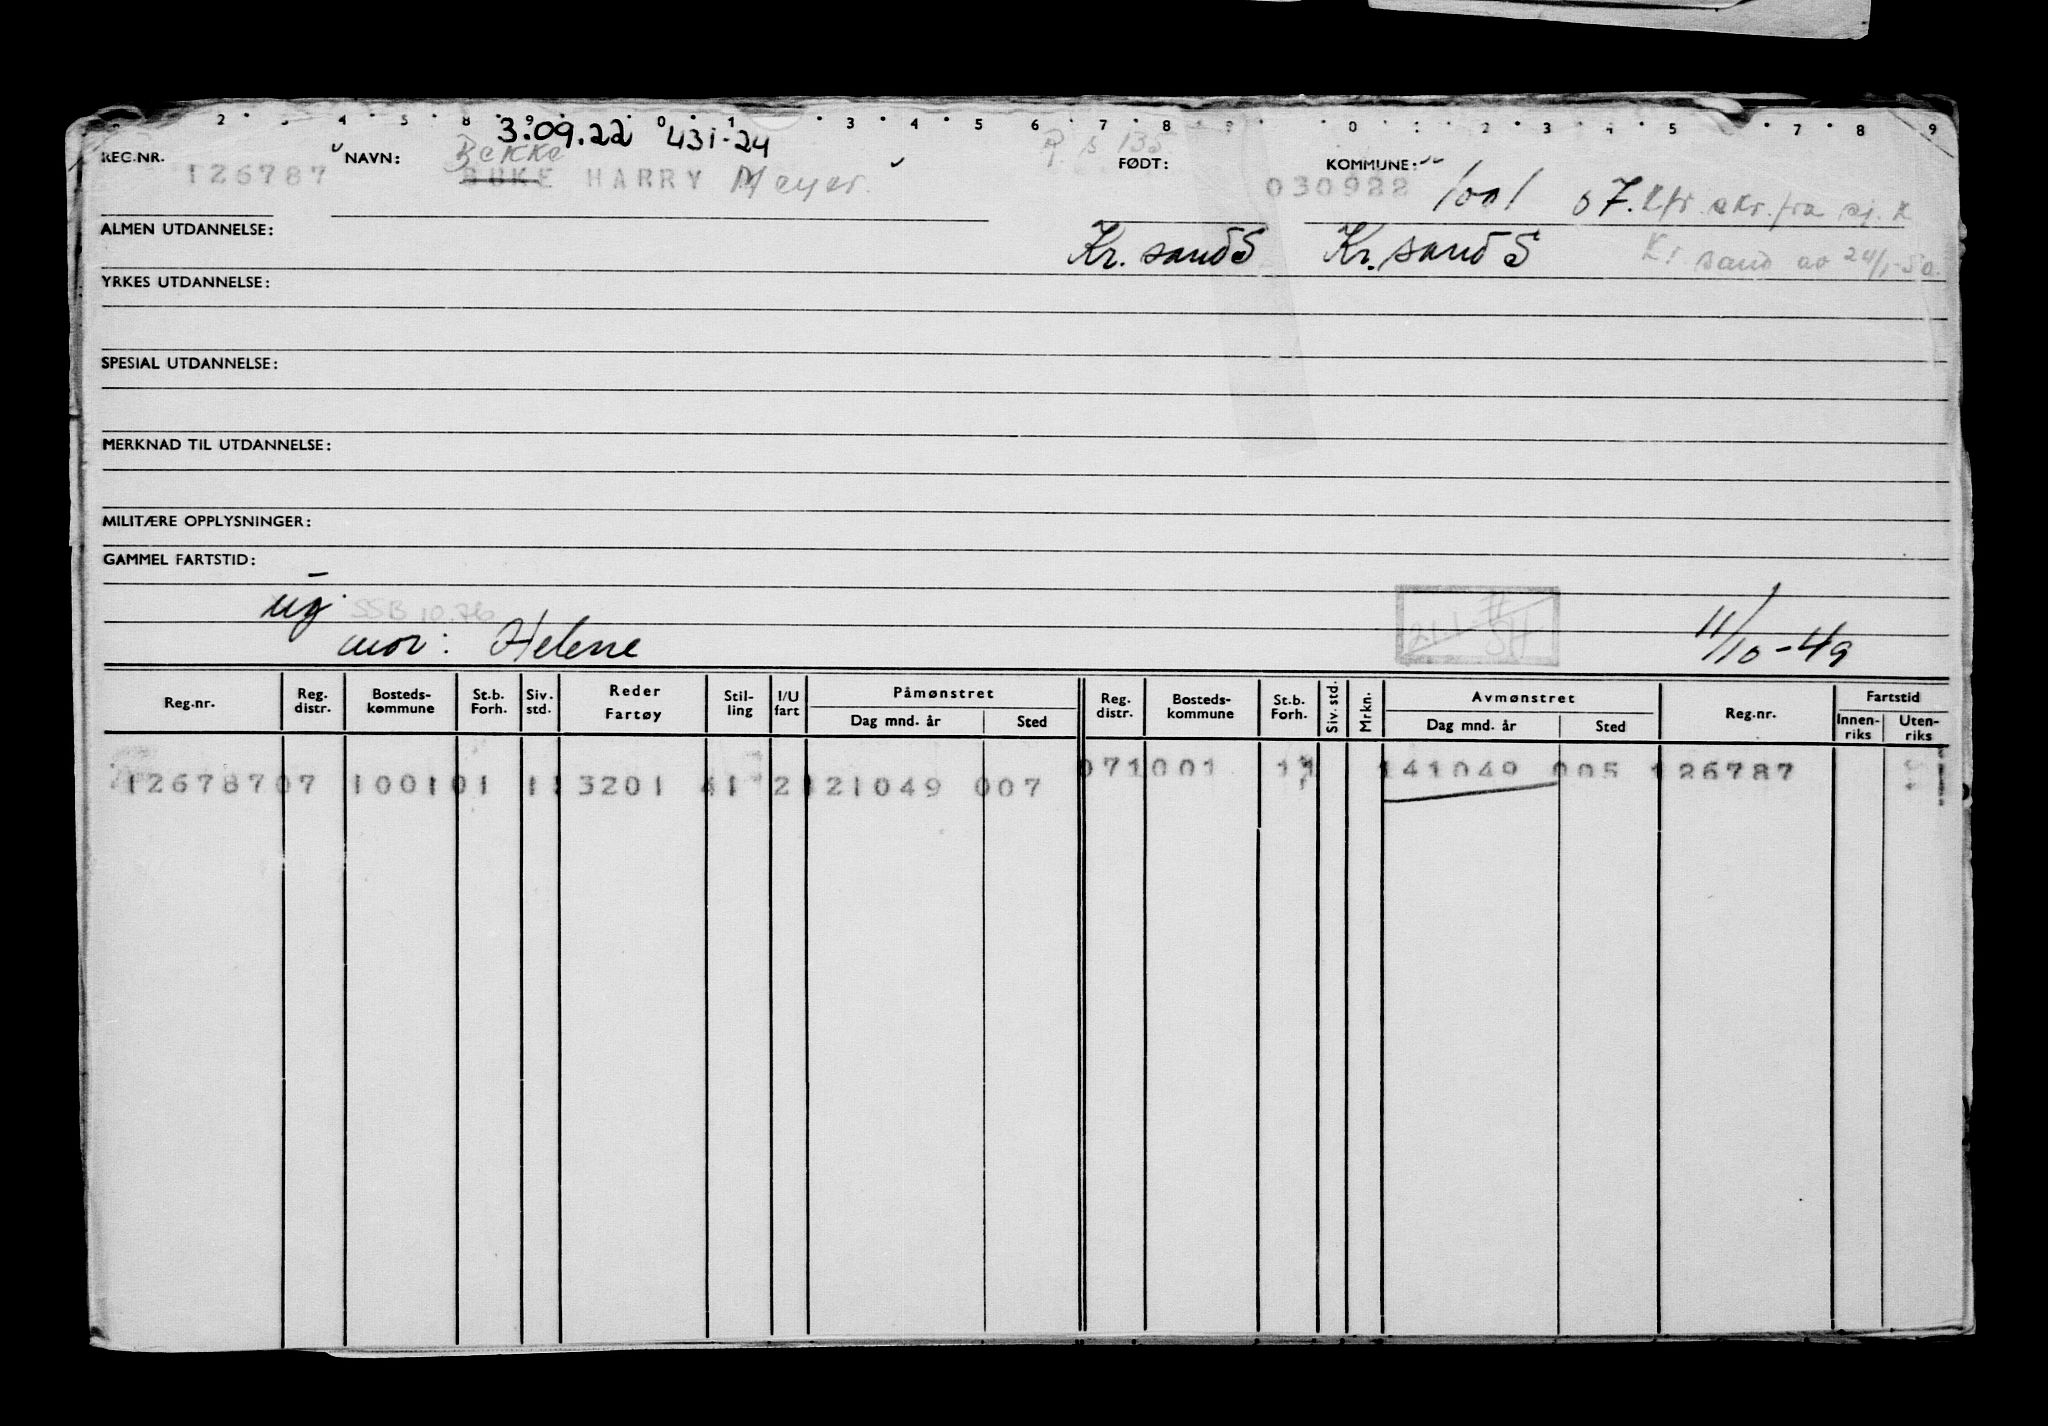 2 3 4 5 8 9 0 1 3 4 5 6 7 8 9 0 1 2 3 4 5 7 8 9
3.09.22 431-24
REG.NR. 126787 NAVN: Bekke BUKE HARRY Meyer. FØDT: 030922 KOMMUNE: 1001 07. Kfr. skr. fra sj. k
ALMEN UTDANNELSE: Kr. sand S Kr. sand S Kr sand av 24/1-50.
YRKES UTDANNELSE:
SPESIAL UTDANNELSE:
MERKNAD TIL UTDANNELSE:
MILITÆRE OPPLYSNINGER:
GAMMEL FARTSTID:
ug SSB 10.76
mor: Helene 11/10-49
Reg.nr. Reg. distr. Bosteds-kommune St.b. Forh. Siv. std. Reder Fartøy Stil-ling I/U fart Påmønstret Dag mnd. år Sted Reg. distr. Bosteds-kommune St.b. Forh. Siv. std. Mrkn. Avmønstret Dag mnd. år Sted Reg.nr. Fartstid Innen-riks Uten-riks
12678707 100101 11 3201 41 2 121049 007 071001 11 141049 005 126787